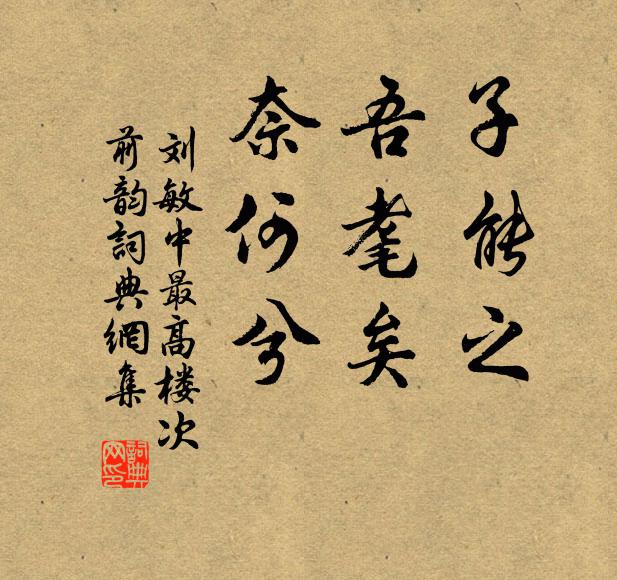 子能之
吾耄矣
奈何兮
刘敏中最高楼次
前韵詞典網集
詞典网印